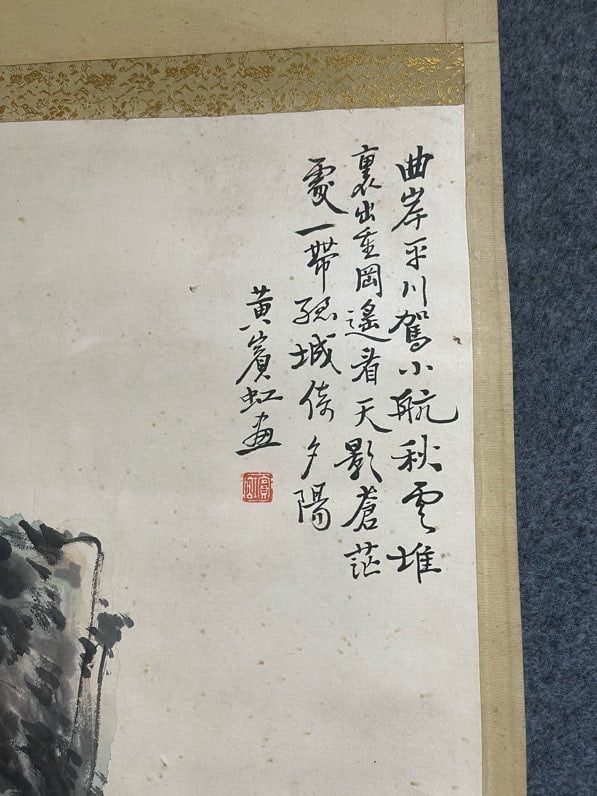 曲岸平川駕小航秋雲堆
裏出重岡遙看天影蒼茫
處一帶孤城倚夕陽
黃賓虹画